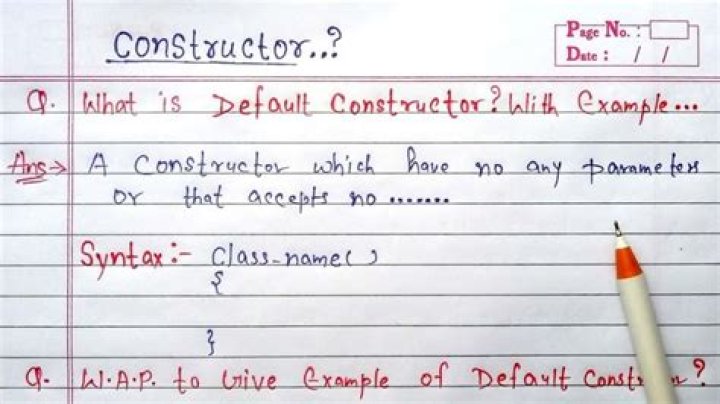 Constructor..?
Page No. :
Date : / /
Q. What is Default Constructor? With Example...
Ans→ A Constructor which have no any parameters
or that accepts no .......
Syntax :- Class-name( )
{
}
Q. W.A.P. to Give Example of Default Const ?